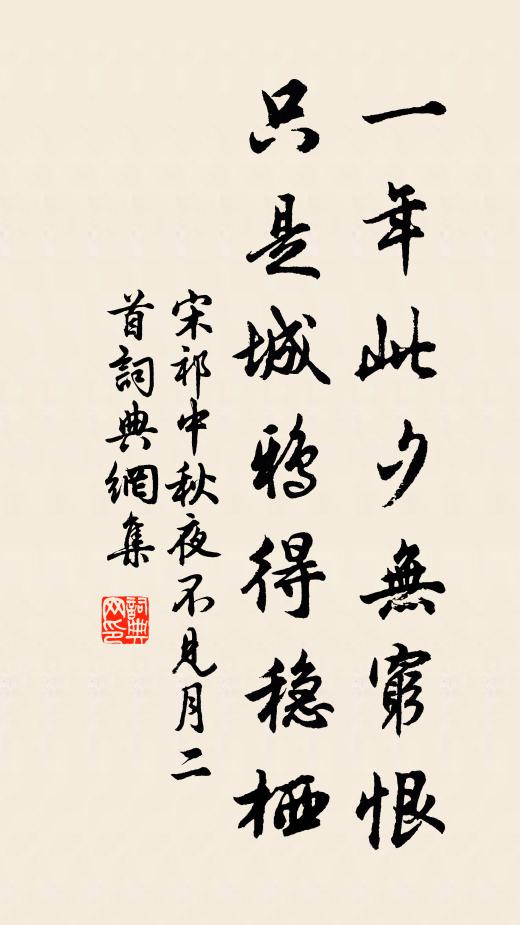 一年此夕無窮恨
只是城鴉得穏栖
宋祁中秋夜不見月二
首詞典網集
詞典网印